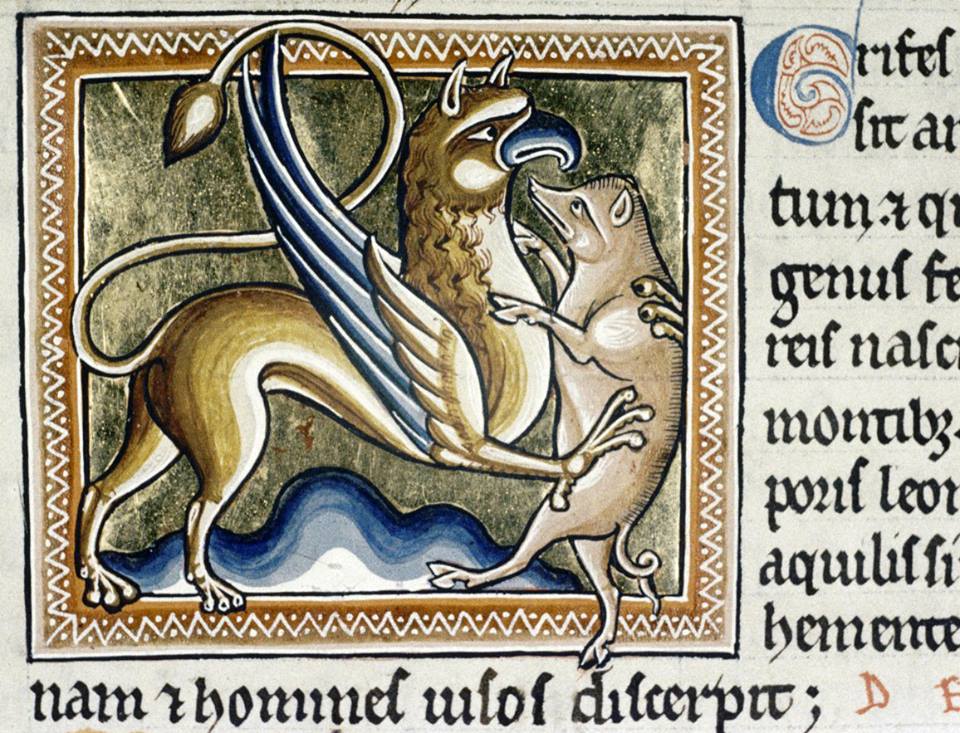 Grifes
sit an
tum ⁊ qu
genus fe
reis nasci
montibꝫ.
poris leon
aquilis si
hemente
nam ⁊ homines uisos discerpit;
D E